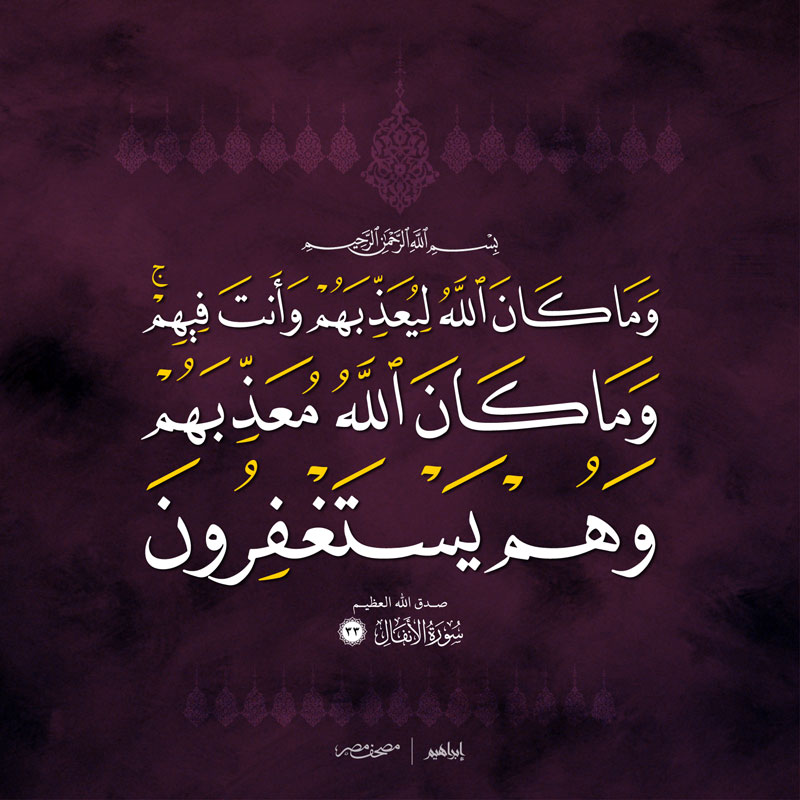 بِسْمِ ٱللَّهِ ٱلرَّحْمَٰنِ ٱلرَّحِيمِ
وَمَا كَانَ ٱللَّهُ لِيُعَذِّبَهُمْ وَأَنتَ فِيهِمْۚ
وَمَا كَانَ ٱللَّهُ مُعَذِّبَهُمْ
وَهُمْ يَسْتَغْفِرُونَ
صدق الله العظيم
سُورَةُ الأَنفَالِ ٣٣
إبراهيم | مصحف مصر